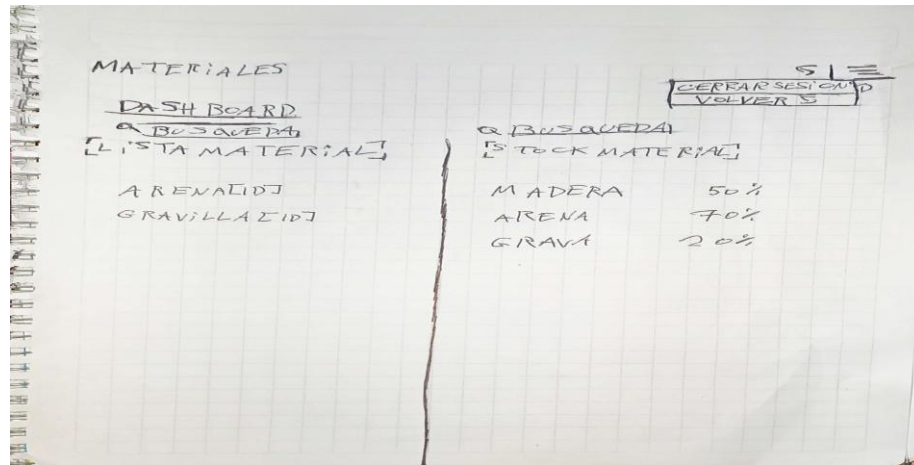 MATERIALES
CERRAR SESION
VOLVER
DASHBOARD
BUSQUEDA
[LISTA MATERIAL]
ARENA[ID]
GRAVILLA[ID]
BUSQUEDA
[STOCK MATERIAL]
MADERA 50%
ARENA 70%
GRAVA 20%